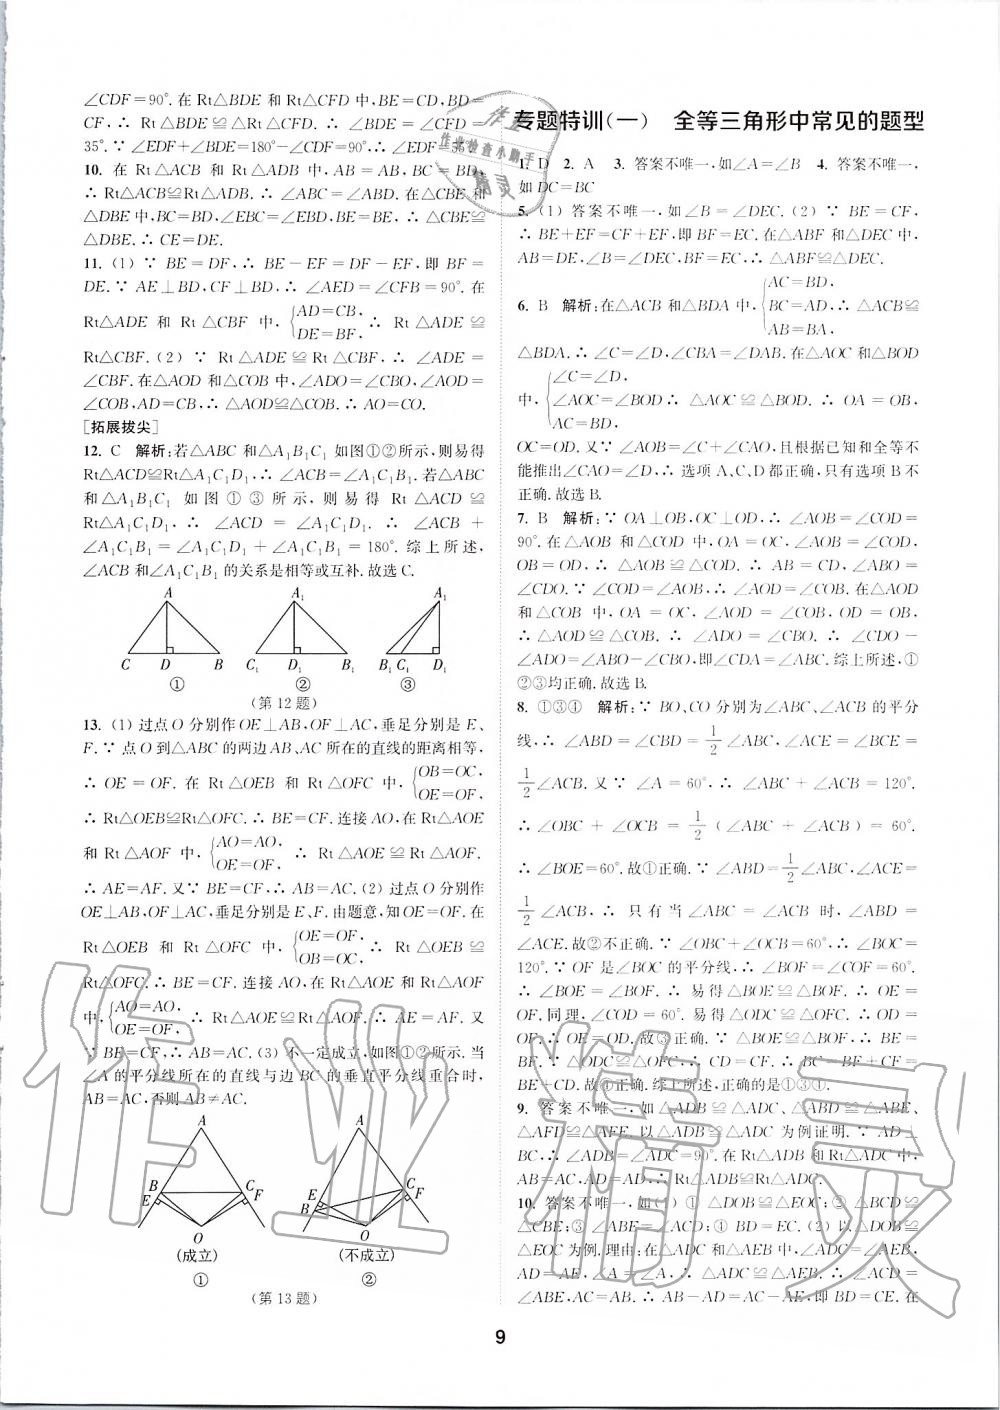 ∠CDF=90°. 在 Rt△BDE 和 Rt△CFD 中, BE=CD, BD=
CF, ∴ Rt△BDE ≌ Rt△CFD. ∴ ∠BDE = ∠CFD =
35°. ∴ ∠EDF+∠BDE=180°-∠CDF=90°. ∴ ∠EDF=55°.
10. 在 Rt△ACB 和 Rt△ADB 中, AB=AB, BC=BD,
∴ Rt△ACB≌Rt△ADB. ∴ ∠ABC=∠ABD. 在△CBE和
△DBE中, BC=BD, ∠EBC=∠EBD, BE=BE, ∴ △CBE≌
△DBE. ∴ CE=DE.
11. (1) ∵ BE=DF, ∴ BE-EF=DF-EF, 即 BF=
DE. ∵ AE⊥BD, CF⊥BD, ∴ ∠AED=∠CFB=90°. 在
Rt△ADE 和 Rt△CBF 中, {AD=CB, DE=BF, ∴ Rt△ADE≌
Rt△CBF. (2) ∵ Rt△ADE≌Rt△CBF, ∴ ∠ADE=
∠CBF. 在△AOD和△COB中, ∠ADO=∠CBO, ∠AOD=
∠COB, AD=CB, ∴ △AOD≌△COB. ∴ AO=CO.
[拓展拔尖]
12. C 解析: 若△ABC 和△A₁B₁C₁ 如图①②所示, 则易得
Rt△ACD≌Rt△A₁C₁D₁, ∴ ∠ACB=∠A₁C₁B₁. 若△ABC
和△A₁B₁C₁ 如图①③所示, 则易得 Rt△ACD≌
Rt△A₁C₁D₁, ∴ ∠ACD=∠A₁C₁D₁. ∴ ∠ACB+
∠A₁C₁B₁=∠A₁C₁D₁+∠A₁C₁B₁=180°. 综上所述,
∠ACB 和∠A₁C₁B₁ 的关系是相等或互补. 故选 C.
A A₁ A₁
C D B C₁ D₁ B₁ B₁ C₁ D₁
① ② ③
(第 12 题)
13. (1) 过点 O 分别作 OE⊥AB, OF⊥AC, 垂足分别是 E、
F. ∵ 点 O 到△ABC 的两边 AB、AC 所在的直线的距离相等,
∴ OE=OF. 在 Rt△OEB 和 Rt△OFC 中, {OB=OC, OE=OF,
∴ Rt△OEB≌Rt△OFC. ∴ BE=CF. 连接 AO, 在 Rt△AOE
和 Rt△AOF 中, {AO=AO, OE=OF, ∴ Rt△AOE≌Rt△AOF.
∴ AE=AF. 又∵ BE=CF, ∴ AB=AC. (2) 过点 O 分别作
OE⊥AB, OF⊥AC, 垂足分别是 E、F. 由题意, 知 OE=OF. 在
Rt△OEB 和 Rt△OFC 中, {OE=OF, OB=OC, ∴ Rt△OEB≌
Rt△OFC. ∴ BE=CF. 连接 AO, 在 Rt△AOE 和 Rt△AOF
中, {AO=AO, OE=OF, ∴ Rt△AOE≌Rt△AOF. ∴ AE=AF. 又
∵ BE=CF, ∴ AB=AC. (3) 不一定成立, 如图①②所示. 当
∠A 的平分线所在的直线与边 BC 的垂直平分线重合时,
AB=AC, 否则 AB≠AC.
A A
B E C F O E B C F O
(成立) (不成立)
① ②
(第 13 题)
专题特训(一) 全等三角形中常见的题型
1. D 2. A 3. 答案不唯一, 如∠A=∠B 4. 答案不唯一,
如 DC=BC
5. (1) 答案不唯一, 如∠B=∠DEC. (2) ∵ BE=CF,
∴ BE+EF=CF+EF, 即 BF=EC. 在△ABF 和△DEC 中,
AB=DE, ∠B=∠DEC, BF=EC, ∴ △ABF≌△DEC.
6. B 解析: 在△ACB 和△BDA 中, {AC=BD, BC=AD, AB=BA, ∴ △ACB≌
△BDA. ∴ ∠C=∠D, ∠CBA=∠DAB. 在△AOC 和△BOD
中, {∠C=∠D, ∠AOC=∠BOD, AC=BD, ∴ △AOC≌△BOD. ∴ OA=OB,
OC=OD. 又∵ ∠AOB=∠C+∠CAO, 且根据已知和全等不
能推出∠CAO=∠D, ∴ 选项 A、C、D 都正确, 只有选项 B 不
正确. 故选 B.
7. B 解析: ∵ OA⊥OB, OC⊥OD, ∴ ∠AOB=∠COD=
90°. 在△AOB 和△COD 中, OA=OC, ∠AOB=∠COD,
OB=OD, ∴ △AOB≌△COD. ∴ AB=CD, ∠ABO=
∠CDO. ∵ ∠COD=∠AOB, ∴ ∠AOD=∠COB. 在△AOD
和△COB 中, OA=OC, ∠AOD=∠COB, OD=OB,
∴ △AOD≌△COB. ∴ ∠ADO=∠CBO. ∴ ∠CDO-
∠ADO=∠ABO-∠CBO, 即∠CDA=∠ABC. 综上所述, ①
②③均正确. 故选 B.
8. ①③④ 解析: ∵ BO、CO 分别为∠ABC、∠ACB 的平分
线, ∴ ∠ABD=∠CBD=1/2∠ABC, ∠ACE=∠BCE=
1/2∠ACB. 又∵ ∠A=60°, ∴ ∠ABC+∠ACB=120°.
∴ ∠OBC+∠OCB=1/2(∠ABC+∠ACB)=60°.
∴ ∠BOE=60°. 故①正确. ∵ ∠ABD=1/2∠ABC, ∠ACE=
1/2∠ACB, ∴ 只有当∠ABC=∠ACB 时, ∠ABD=
∠ACE. 故②不正确. ∵ ∠OBC+∠OCB=60°, ∴ ∠BOC=
120°. ∵ OF 是∠BOC 的平分线, ∴ ∠BOF=∠COF=60°.
∴ ∠BOE=∠BOF. ∴ 易得△BOE≌△BOF. ∴ OE=
OF. 同理, ∠COD=60°. 易得△ODC≌△OFC. ∴ OD=
OF. ∴ OE=OD. 故③正确. ∵ △BOE≌△BOF, ∴ BE=
BF. ∵ △ODC≌△OFC, ∴ DC=CF. ∴ BC=BF+CF=
BE+CD. 故④正确. 综上所述, 正确的是①③④.
9. 答案不唯一, 如△ADB≌△ADC、△ABD≌△ABE、
△AFD≌△AFE. 以△ADB≌△ADC 为例证明. ∵ AD⊥
BC, ∴ ∠ADB=∠ADC=90°. 在 Rt△ADB 和 Rt△ADC 中,
AB=AC, AD=AD, ∴ Rt△ADB≌Rt△ADC.
10. 答案不唯一, 如(1) ① △DOB≌△EOC; ② △BCD≌
△CBE; ③ △ABE≌△ACD; ① BD=EC. (2) 以△DOB≌
△EOC 为例. 理由: 在△ADC 和△AEB 中, ∠ACD=
∠ABE, AC=AB, ∴ AB-AD=AC-AE, 即 BD=CE. 在
9
作业精灵
作业检查小助手